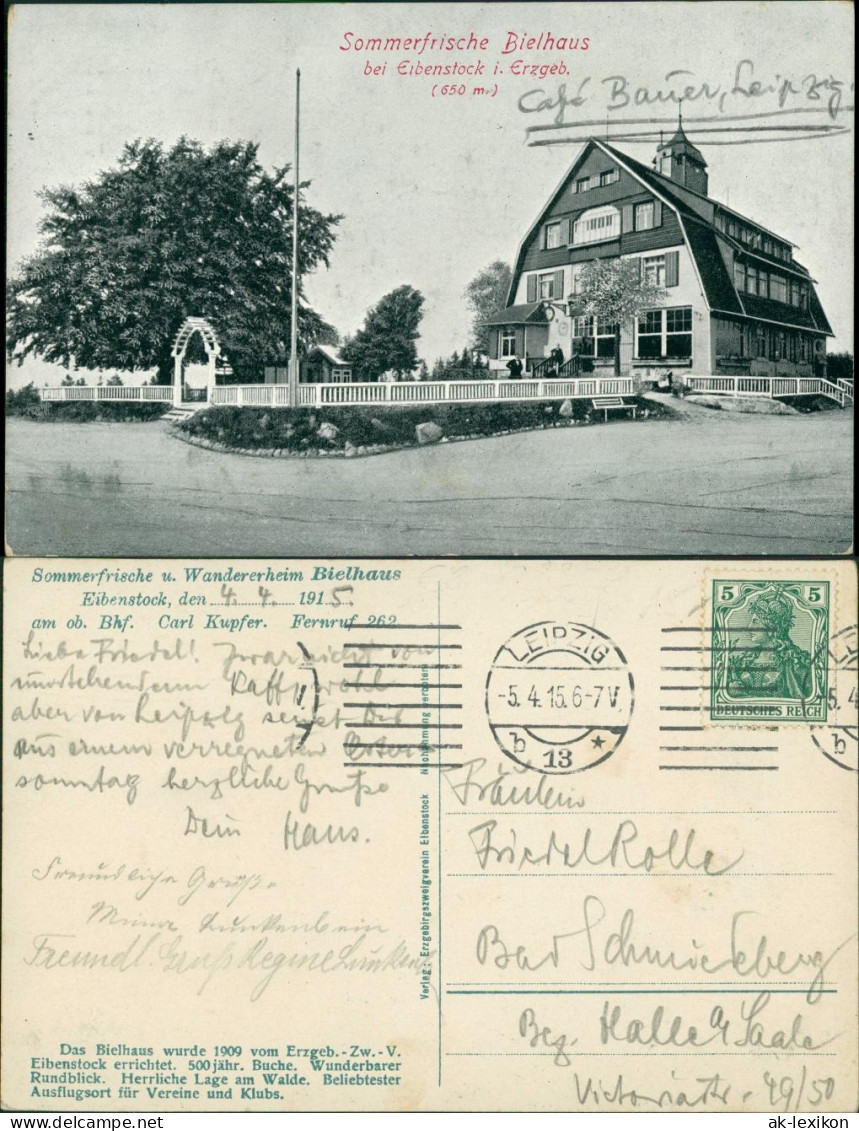 Sommerfrische Bielhaus
bei Eibenstock i. Erzgeb.
(650 m.)
Café Bauer, Leipzig.
Sommerfrische u. Wandererheim Bielhaus
Eibenstock, den 4. 4. 1915.
am ob. Bhf. Carl Kupfer. Fernruf 262
Liebe Friedel! Zwar nicht von
umstehendem Kaffe wohl
aber von Leipzig sendet Dir
aus einem verregneten Oster-
sonntag herzliche Grüße
Dein Hans.
Freundliche Grüße
Lunkenbein
Freundl. Gruß Regine Lunkenb
Das Bielhaus wurde 1909 vom Erzgeb.-Zw.-V.
Eibenstock errichtet. 500jähr. Buche. Wunderbarer
Rundblick. Herrliche Lage am Walde. Beliebtester
Ausflugsort für Vereine und Klubs.
Verlag: Erzgebirgszweigverein Eibenstock Nachahmung verboten
LEIPZIG
-5.4.15.6-7V.
b 13 *
5 5
DEUTSCHES REICH
Fräulein
Friedel Rolle
Bad Schmiedeberg
Bez. Halle a/ Saale
Victoriastr. 49/50
www.ansichtskarten-lexikon.de
ak-lexikon